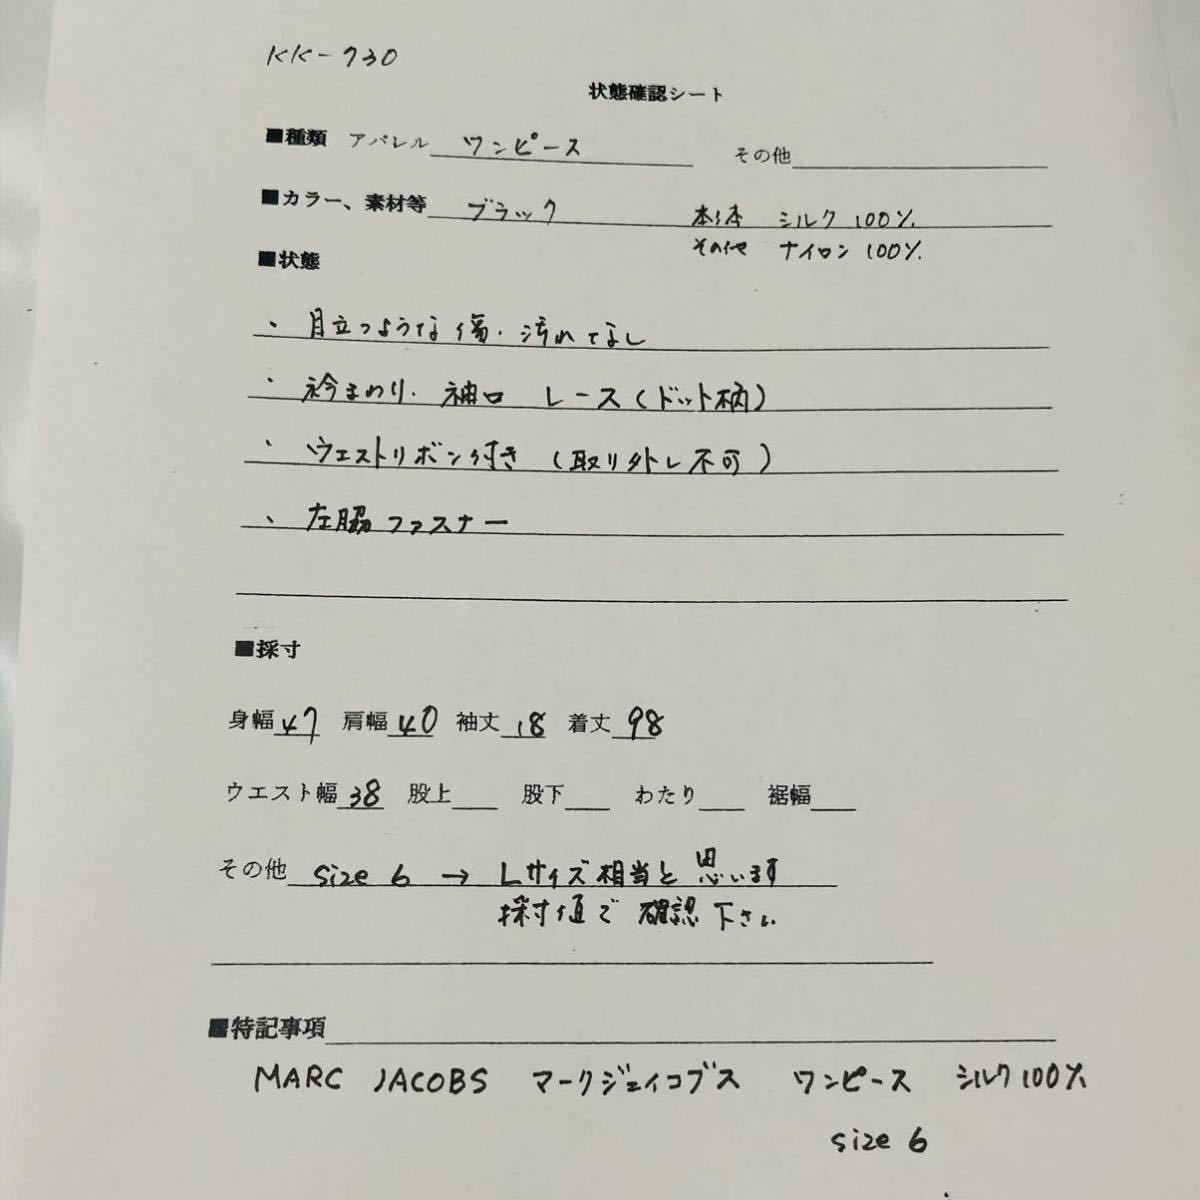 KK-730
状態確認シート
■種類 アパレル ワンピース その他
■カラー、素材等 ブラック 本体 シルク 100%
その他 ナイロン 100%
■状態
・目立つような傷・汚れてなし
・衿まわり・袖口 レース(ドット柄)
・ウエストリボン付き (取り外し不可)
、左脇ファスナー
■採寸
身幅 47 肩幅 40 袖丈 18 着丈 98
ウエスト幅 38 股上 股下 わたり 裾幅
その他 size 6 → Lサイズ相当と思います
採寸値で確認下さい
■特記事項
MARC JACOBS マークジェイコブス ワンピース シルク100%
size 6